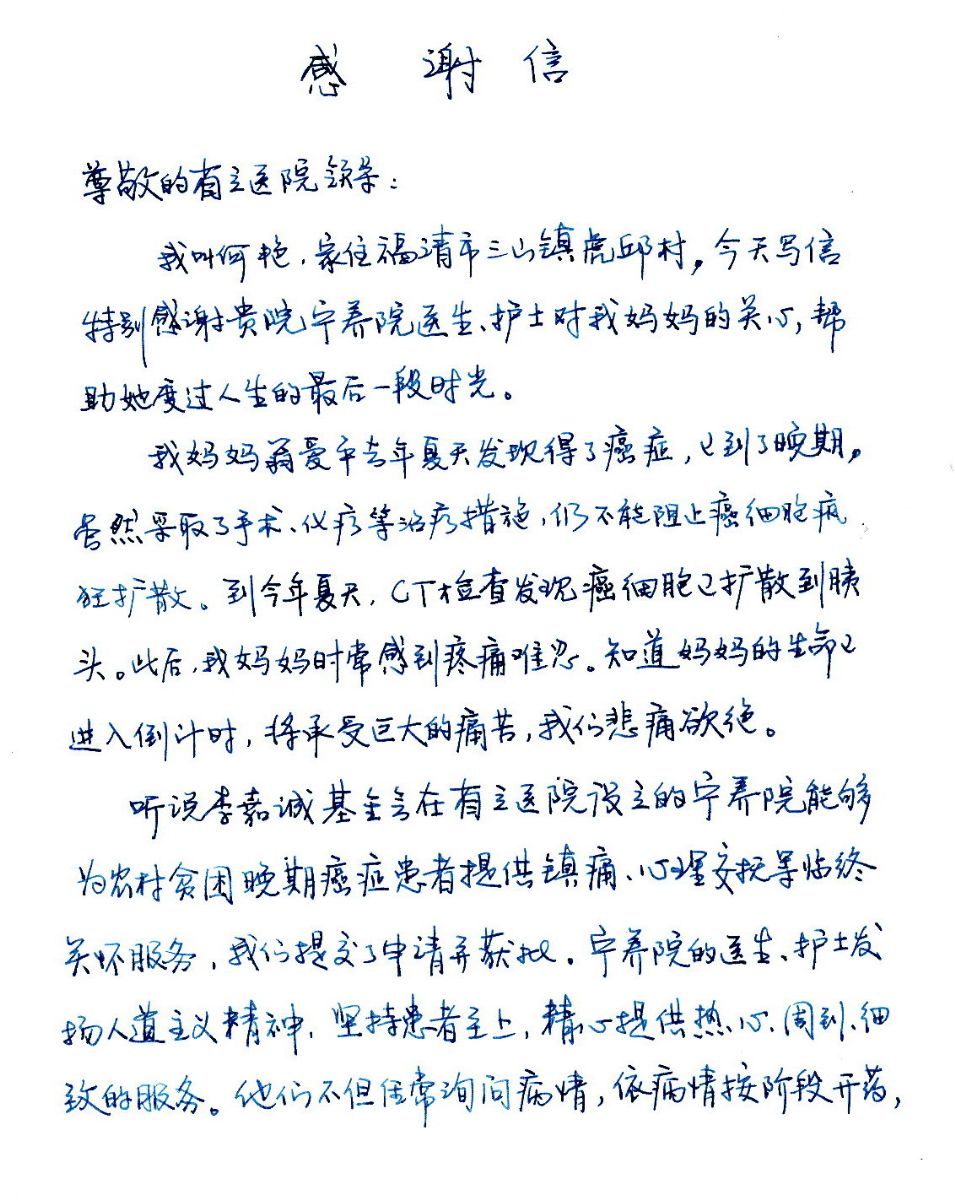 感谢信
尊敬的有立医院领导：
我叫何艳，家住福清市三山镇虎邱村。今天写信
特别感谢贵院宁养院医生、护士对我妈妈的关心，帮
助她度过人生的最后一段时光。
我妈妈翁爱平去年夏天发现得了癌症，已到了晚期。
虽然采取了手术、化疗等治疗措施，仍不能阻止癌细胞疯
狂扩散。到今年夏天，CT检查发现癌细胞已扩散到胰
头。此后，我妈妈时常感到疼痛难忍。知道妈妈的生命已
进入倒计时，将承受巨大的痛苦，我们悲痛欲绝。
听说李嘉诚基金会在有立医院设立的宁养院能够
为农村贫困晚期癌症患者提供镇痛、心理安抚等临终
关怀服务，我们提交了申请并获批。宁养院的医生、护士发
扬人道主义精神，坚持患者至上，精心提供热心、周到、细
致的服务。他们不但经常询问病情，依病情按阶段开药，